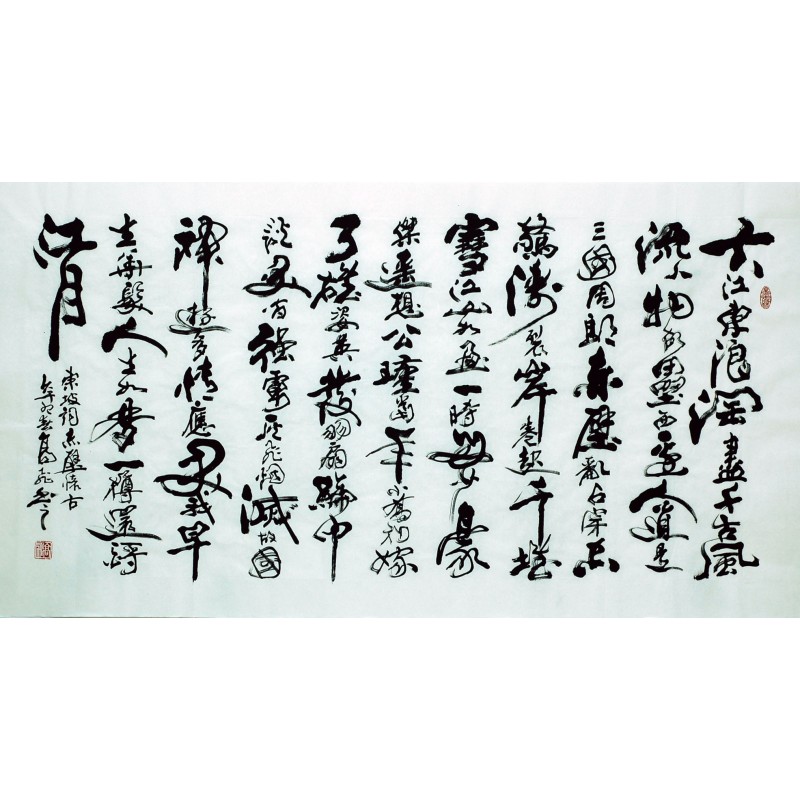 大江東浪淘盡千古風
流人物故壘西邊人道是
三國周郎赤壁亂石穿空
驚濤裂岸卷起千堆
雪江山如畫一時多少豪
傑遙想公瑾當年小喬初嫁
了雄姿英發羽扇綸巾
談笑間強虜灰飛烟滅故國
神遊多情應笑我早
生華髮人生如夢一樽還酹
江月
東坡詞赤壁懷古